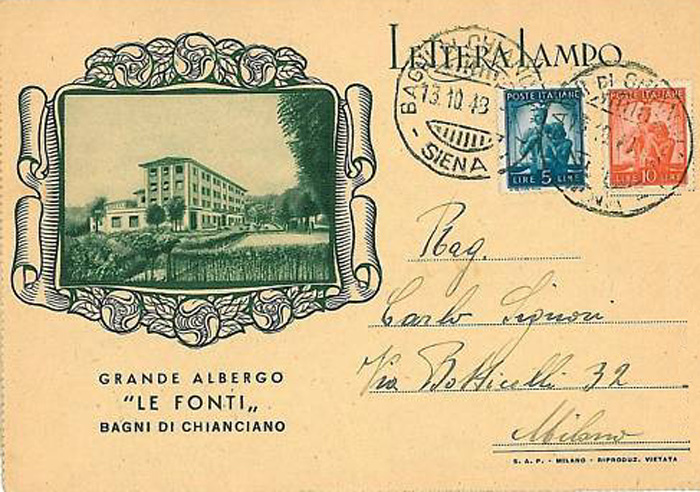 LETTERA LAMPO
BAGNI DI CHIANCIANO
13.10.48
SIENA
POSTE ITALIANE
LIRE 5 LIRE
POSTE ITALIANE
LIRE 10 LIRE
Rag.
Carlo Signori
Via Botticelli 32
Milano
GRANDE ALBERGO
"LE FONTI„
BAGNI DI CHIANCIANO
S. A. P. - MILANO - RIPRODUZ. VIETATA